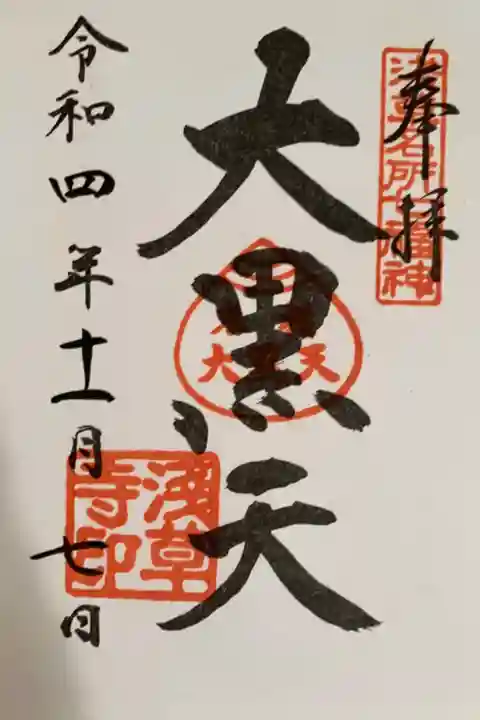 奉拝
浅草名所七福神
大黒天
大黒天
浅草寺印
令和四年十一月七日